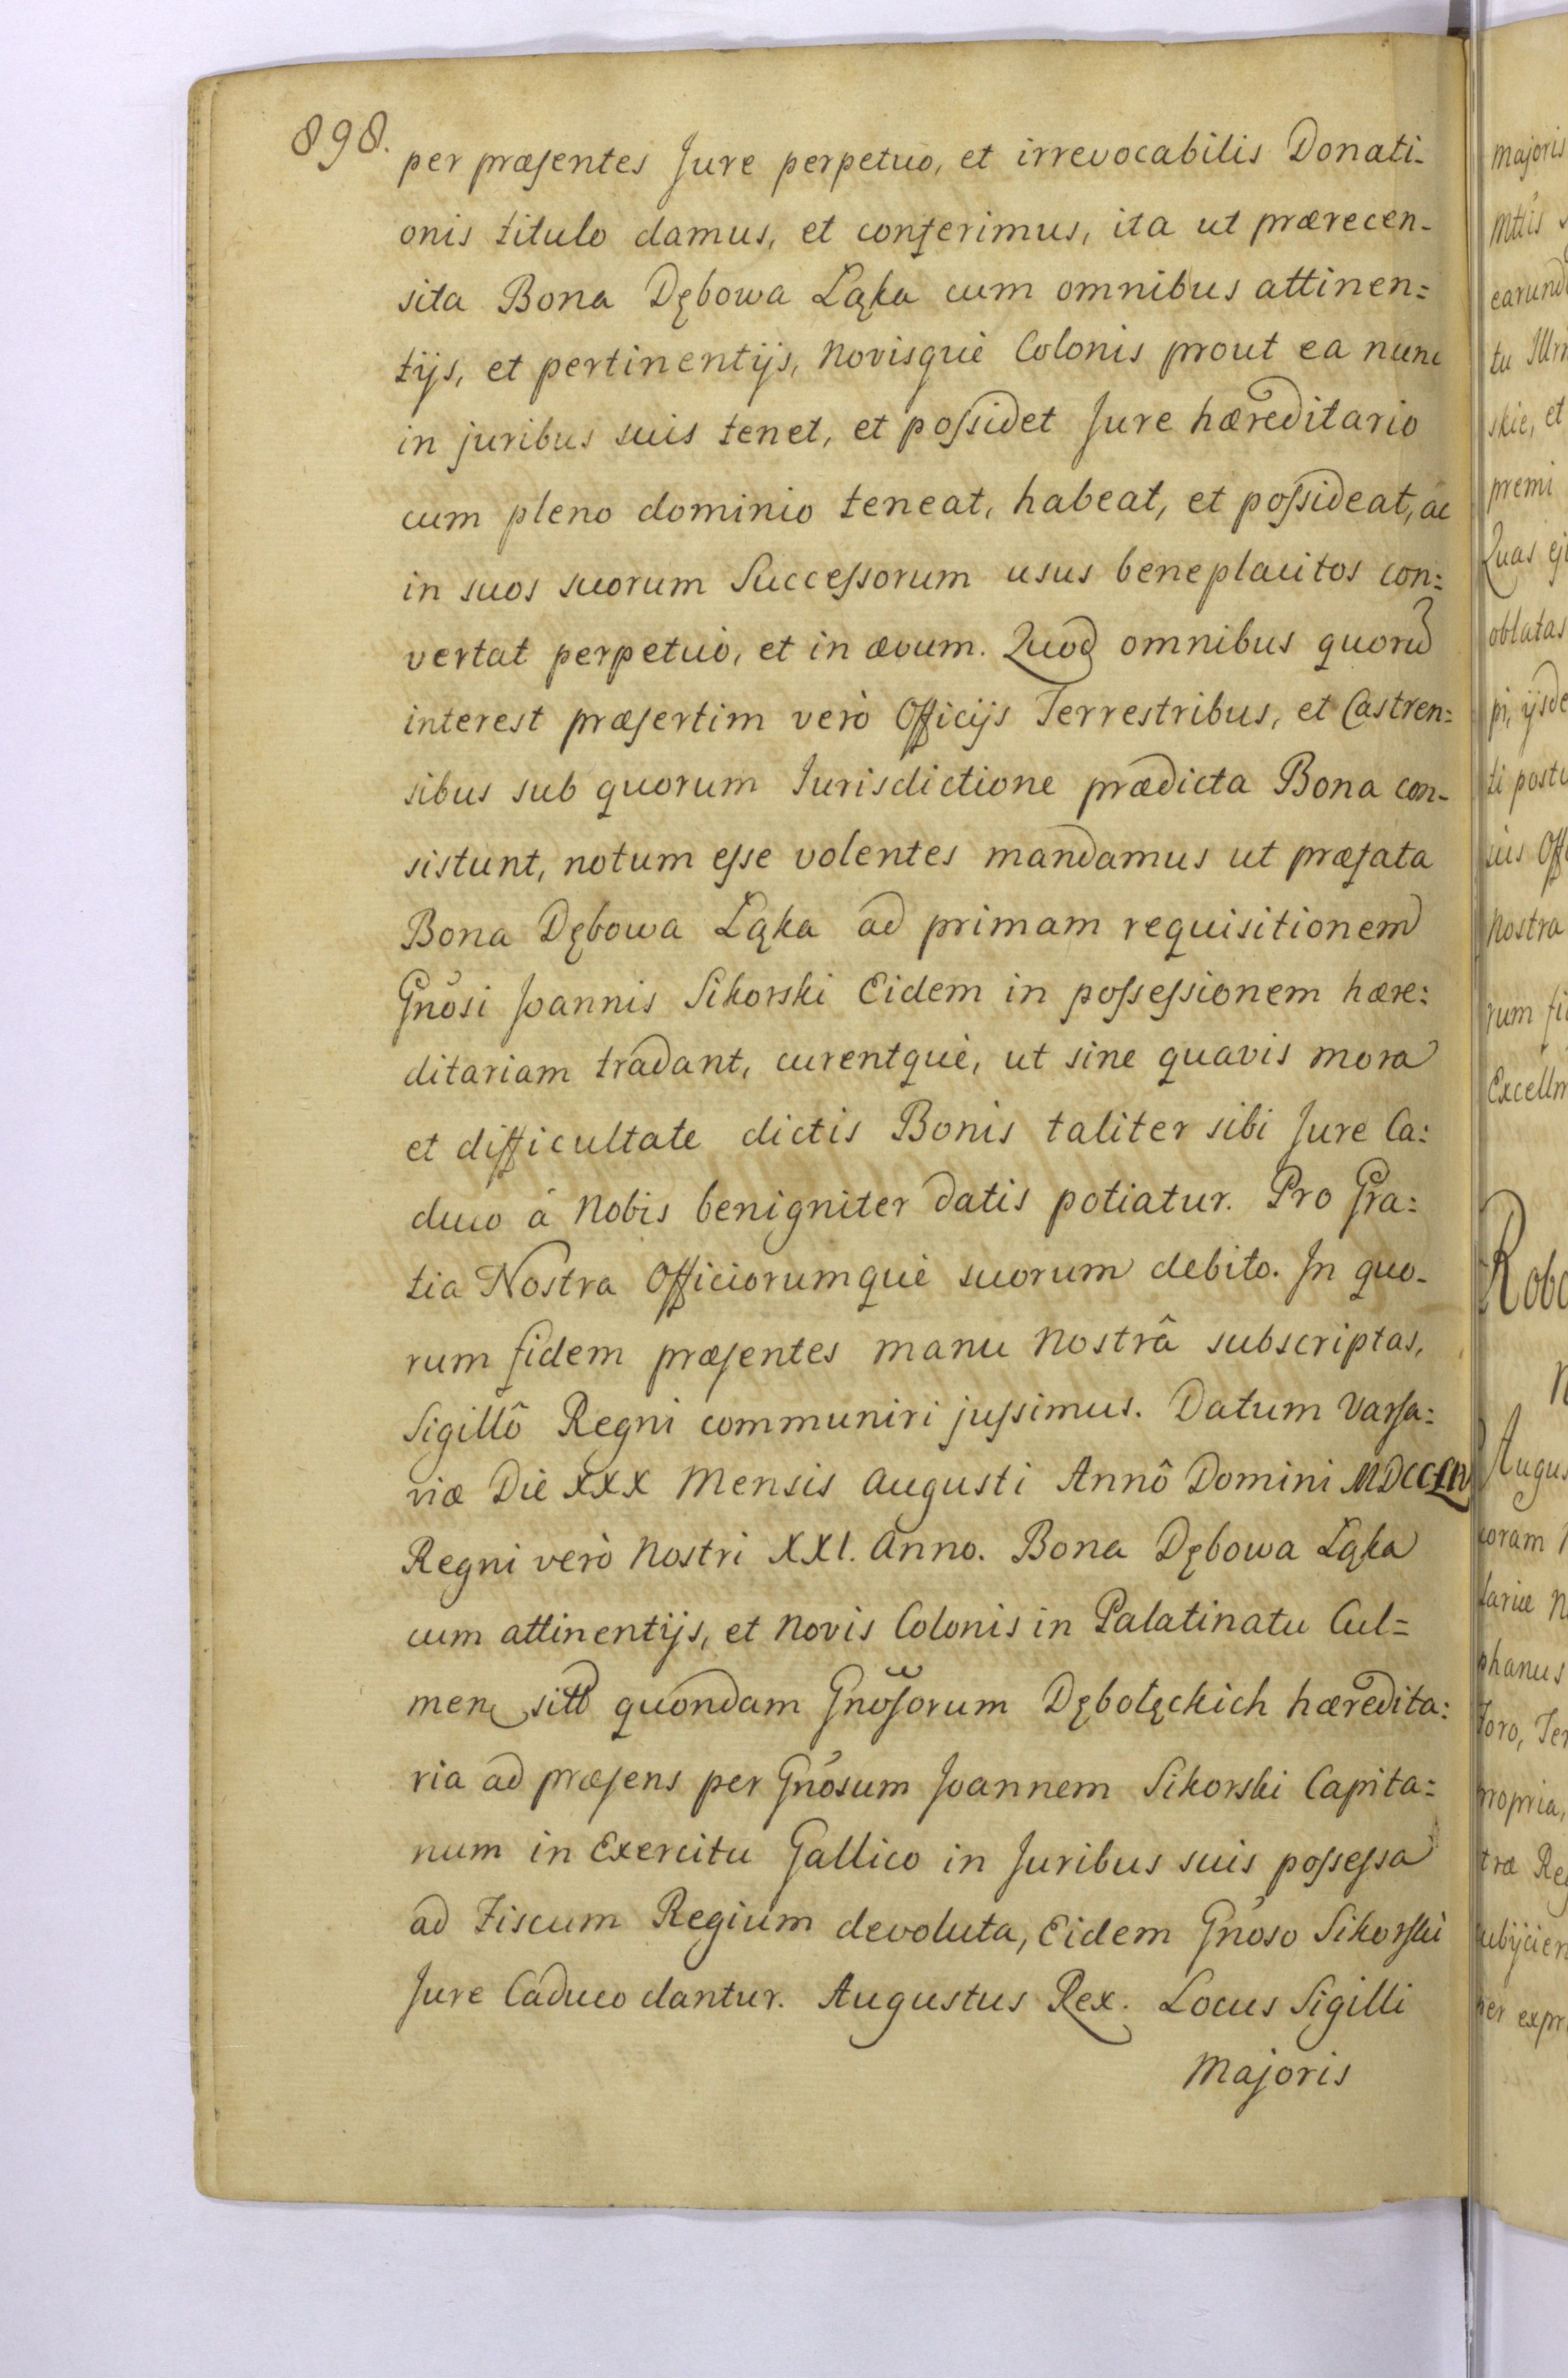 898.
per præsentes Jure perpetuo, et irrevocabilis Donati-
onis titulo damus, et conferimus, ita ut prærecen-
sita Bona Dębowa Łąka cum omnibus attinen=
tijs, et pertinentijs, Novisquè Colonis prout ea nunc
in juribus suis tenet, et possidet Jure hæreditario
cum pleno dominio teneat, habeat, et possideat, ac
in suos suorum Successorum usus beneplacitos con=
vertat perpetuò, et in ævum. Quod omnibus quorũ
interest præsertim verò Officijs Terrestribus, et Castren=
sibus sub quorum Jurisdictione prædicta Bona con-
sistunt, notum esse volentes mandamus ut præfata
Bona Dębowa Łąka ad primam requisitionem
Gnõsi Joannis Sikorski Eidem in possessionem hære=
ditariam tradant, curentquè, ut sine quavis mora
et difficultate dictis Bonis taliter sibi Jure Ca=
duco à Nobis benigniter datis potiatur. Pro Gra=
tia Nostra Officiorumquè suorum debito. In quo-
rum fidem præsentes manu Nostrâ subscriptas,
Sigillô Regni communiri jussimus. Datum Varsa=
viæ Die XXX Mensis Augusti Annô Domini MDCCLIV
Regni verò Nostri XXI. Anno. Bona Dębowa Łąka
cum attinentijs, et Novis Colonis in Palatinatu Cul=
men sita quondam Gnõsorum Dębołęckich hæredita=
ria ad præsens per Gnõsum Joannem Sikorski Capita=
num in Exercitu Gallico in Juribus suis possessa
ad Fiscum Regium devoluta, Eidem Gnõso Sikorski
Jure Caduco dantur. Augustus Rex. Locus Sigilli
Majoris
majoris
earund
tu Illm
skie, et
premi
Quas ej
oblatas
pi, ijsde
ti postu
ius Offi
Nostra
rum fi
Excellm
Robo
Augus
coram
phanus
foro, Ter
propria,
træ Reg
subijcien
per expr